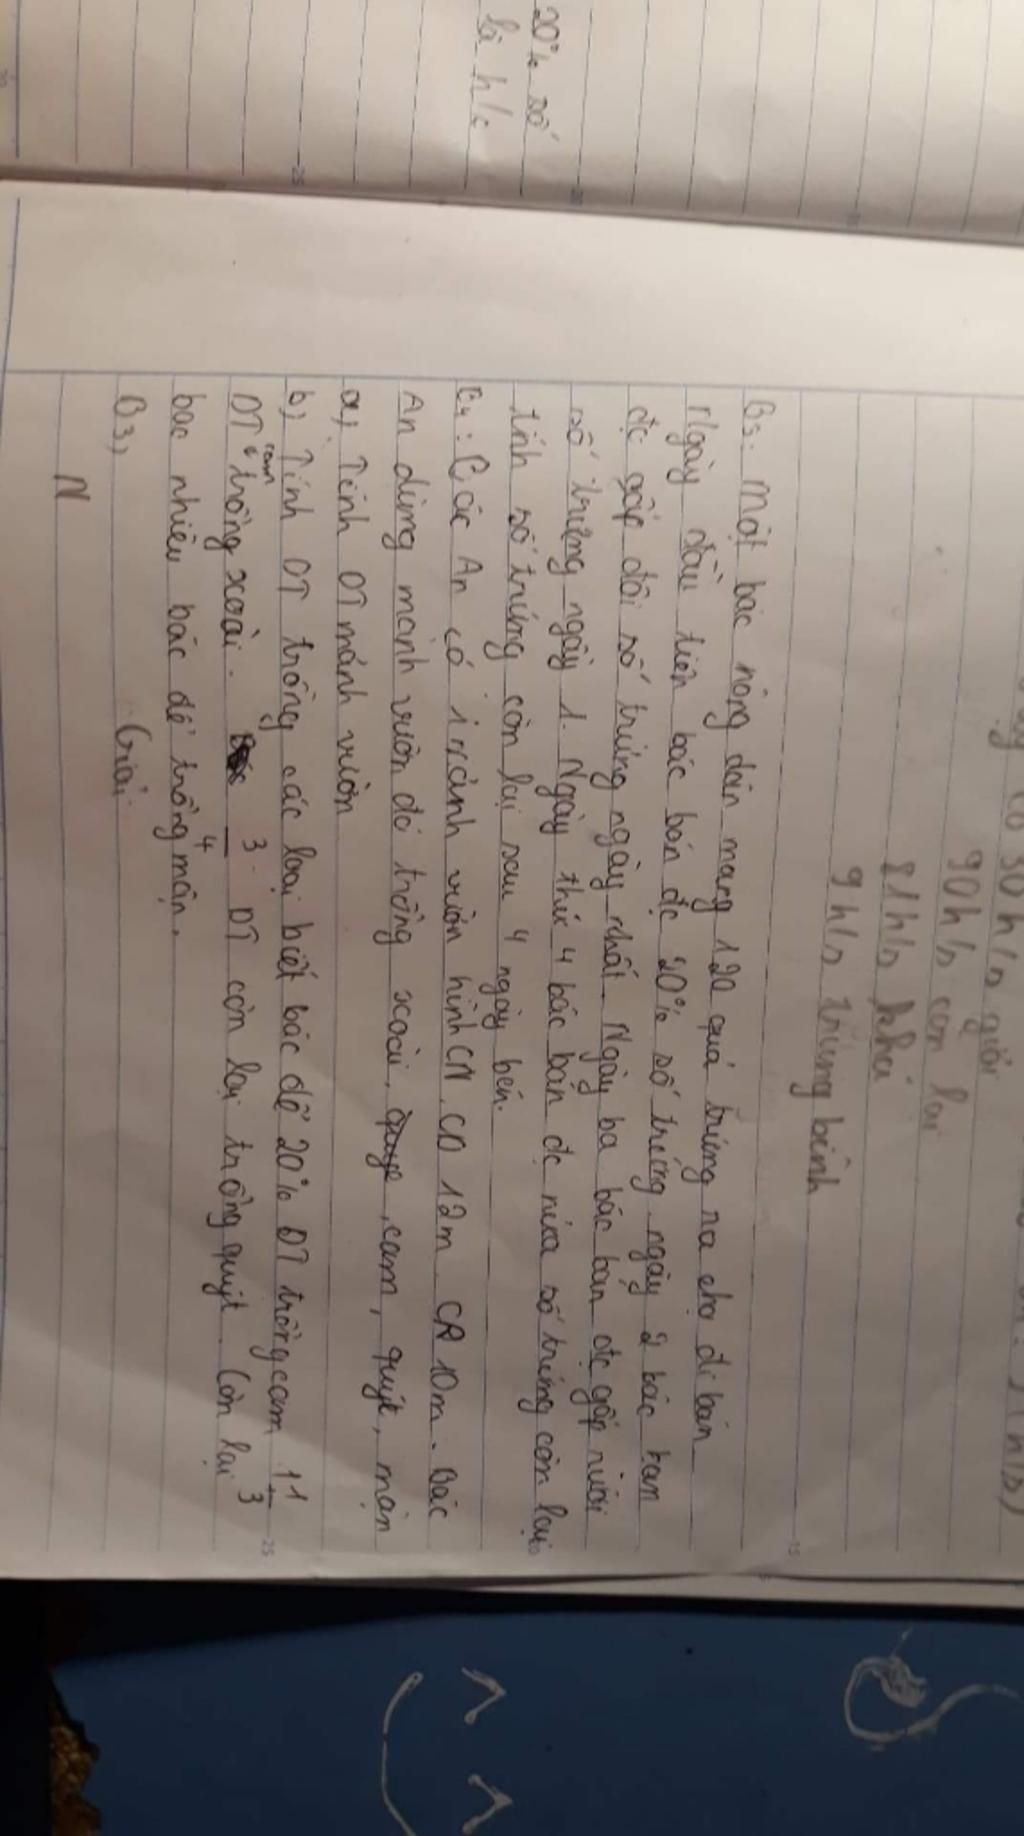 20% số
là h/s
có 30 h/s giỏi
90 h/s còn lại
81 h/s khá
9 h/s trung bình
B3: Một bác nông dân mang 120 quả trứng ra chợ đi bán
Ngày đầu tiên bác bán đc 20% số trứng ngày 2 bác bán
đc gấp đôi số trứng ngày nhất. Ngày ba bác bán đc gấp rưỡi
số trứng ngày 1. Ngày thứ 4 bác bán đc nửa số trứng còn lại
tính số trứng còn lại sau 4 ngày bán.
B4: Bác An có 1 mảnh vườn hình CN, CD 12m. CR 10m. Bác
An dùng mảnh vườn đó trồng xoài, cam, quýt, mận
a, Tính DT mảnh vườn
b, Tính DT trồng các loại biết bác để 20% DT trồng cam 11/3
DT cam trồng xoài. 3/4 DT còn lại trồng quýt. Còn lại
bao nhiêu bác để trồng mận.
Giải
B3,
N
15
25